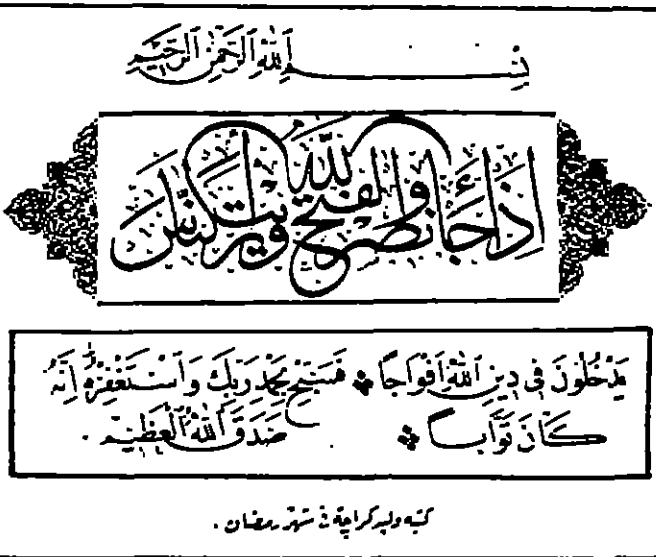 بِسْمِ ٱللّٰهِ ٱلرَّحْمٰنِ ٱلرَّحِيْمِ
إِذَا جَاءَ نَصْرُ اللّٰهِ وَالْفَتْحُ وَرَأَيْتَ النَّاسَ
يَدْخُلُونَ فِى دِينِ ٱللّٰهِ أَفْوَاجًا ❖ فَسَبِّحْ بِحَمْدِ رَبِّكَ وَٱسْتَغْفِرْهُ إِنَّهُ
كَانَ تَوَّابًا ❖ صَدَقَ ٱللّٰهُ ٱلْعَظِيْم .
كتبه وليد كراجة فى شهر رمضان .